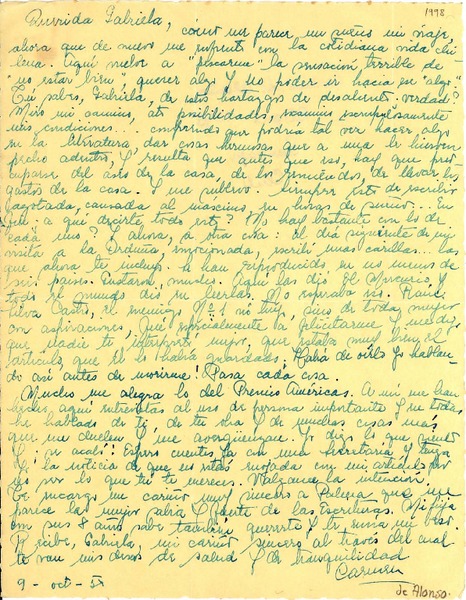 1998
Querida Gabriela, cómo me parece un sueño mi viaje,
ahora que de nuevo me enfrento con la cotidiana vida chi
lena. Aquí vuelve a "pescarme" la sensación terrible de
"no estar bien" querer algo y no poder ir hacia ese "algo"
Tú sabes, Gabriela, de estos hartazgos de desaliento verdad?
Miro mi camino, mis posibilidades, examino escrupulosamente
mis condiciones... comprendo que podría tal vez hacer algo
en la literatura, dar cosas hermosas que a una le
pecho adentro, y resulta que antes que eso, hay que preo
cuparse del aseo de la casa, de los remiendos, de llevar los
gastos de la casa. Y me sublevo. Siempre esto de escribir
agotada, cansada al máximo, en horas de sueño... En
fin a qué decirte todo esto? No hay bastante con lo de
cada uno? Y ahora, a otra cosa: el día siguiente de mi
visita a la Orduña, emocionada, escribí unas carillas... las
que ahora te incluyo. Se han reproducido en no menos de
seis países. Enviaron muchos. Aquí las dió El Mercurio y
todo el mundo dió en leerlas. No esperaba eso. Raúl
Silva Castro, el enemigo N° 1 no tuyo, sino de toda mujer
con aspiraciones, fué especialmente a felicitarme y me dijo,
que nadie te interpretó mejor, que estaba muy bien el
artículo, que él lo había guardado. Había de oírlo yo hablan
do así antes de morirme! Pasa cada cosa.
Mucho me alegra lo del Premio Américas. A mí me han
hecho aquí entrevistas al uso de persona importante y en todas
he hablado de ti, de tu obra y de muchas cosas más
que me duelen y me avergüenzan. Yo digo lo que siento
y se acabó! Espero cuentes ya con una secretaria y tenga
yo la noticia de que no estás enojada con mi artículo por
no ser lo que tú te mereces. Válgame la intención.
Te encargo un cariño muy sincero a Palma que me
parece la mujer sabia y fuerte de las Escrituras. Mi hija
con sus 8 años sabe también quererte y te envía un beso
Recibe, Gabriela, mi cariño sincero al través del cual
te van mis deseos de salud y de tranquilidad
Carmen
9 - oct - 5
de Alonso.